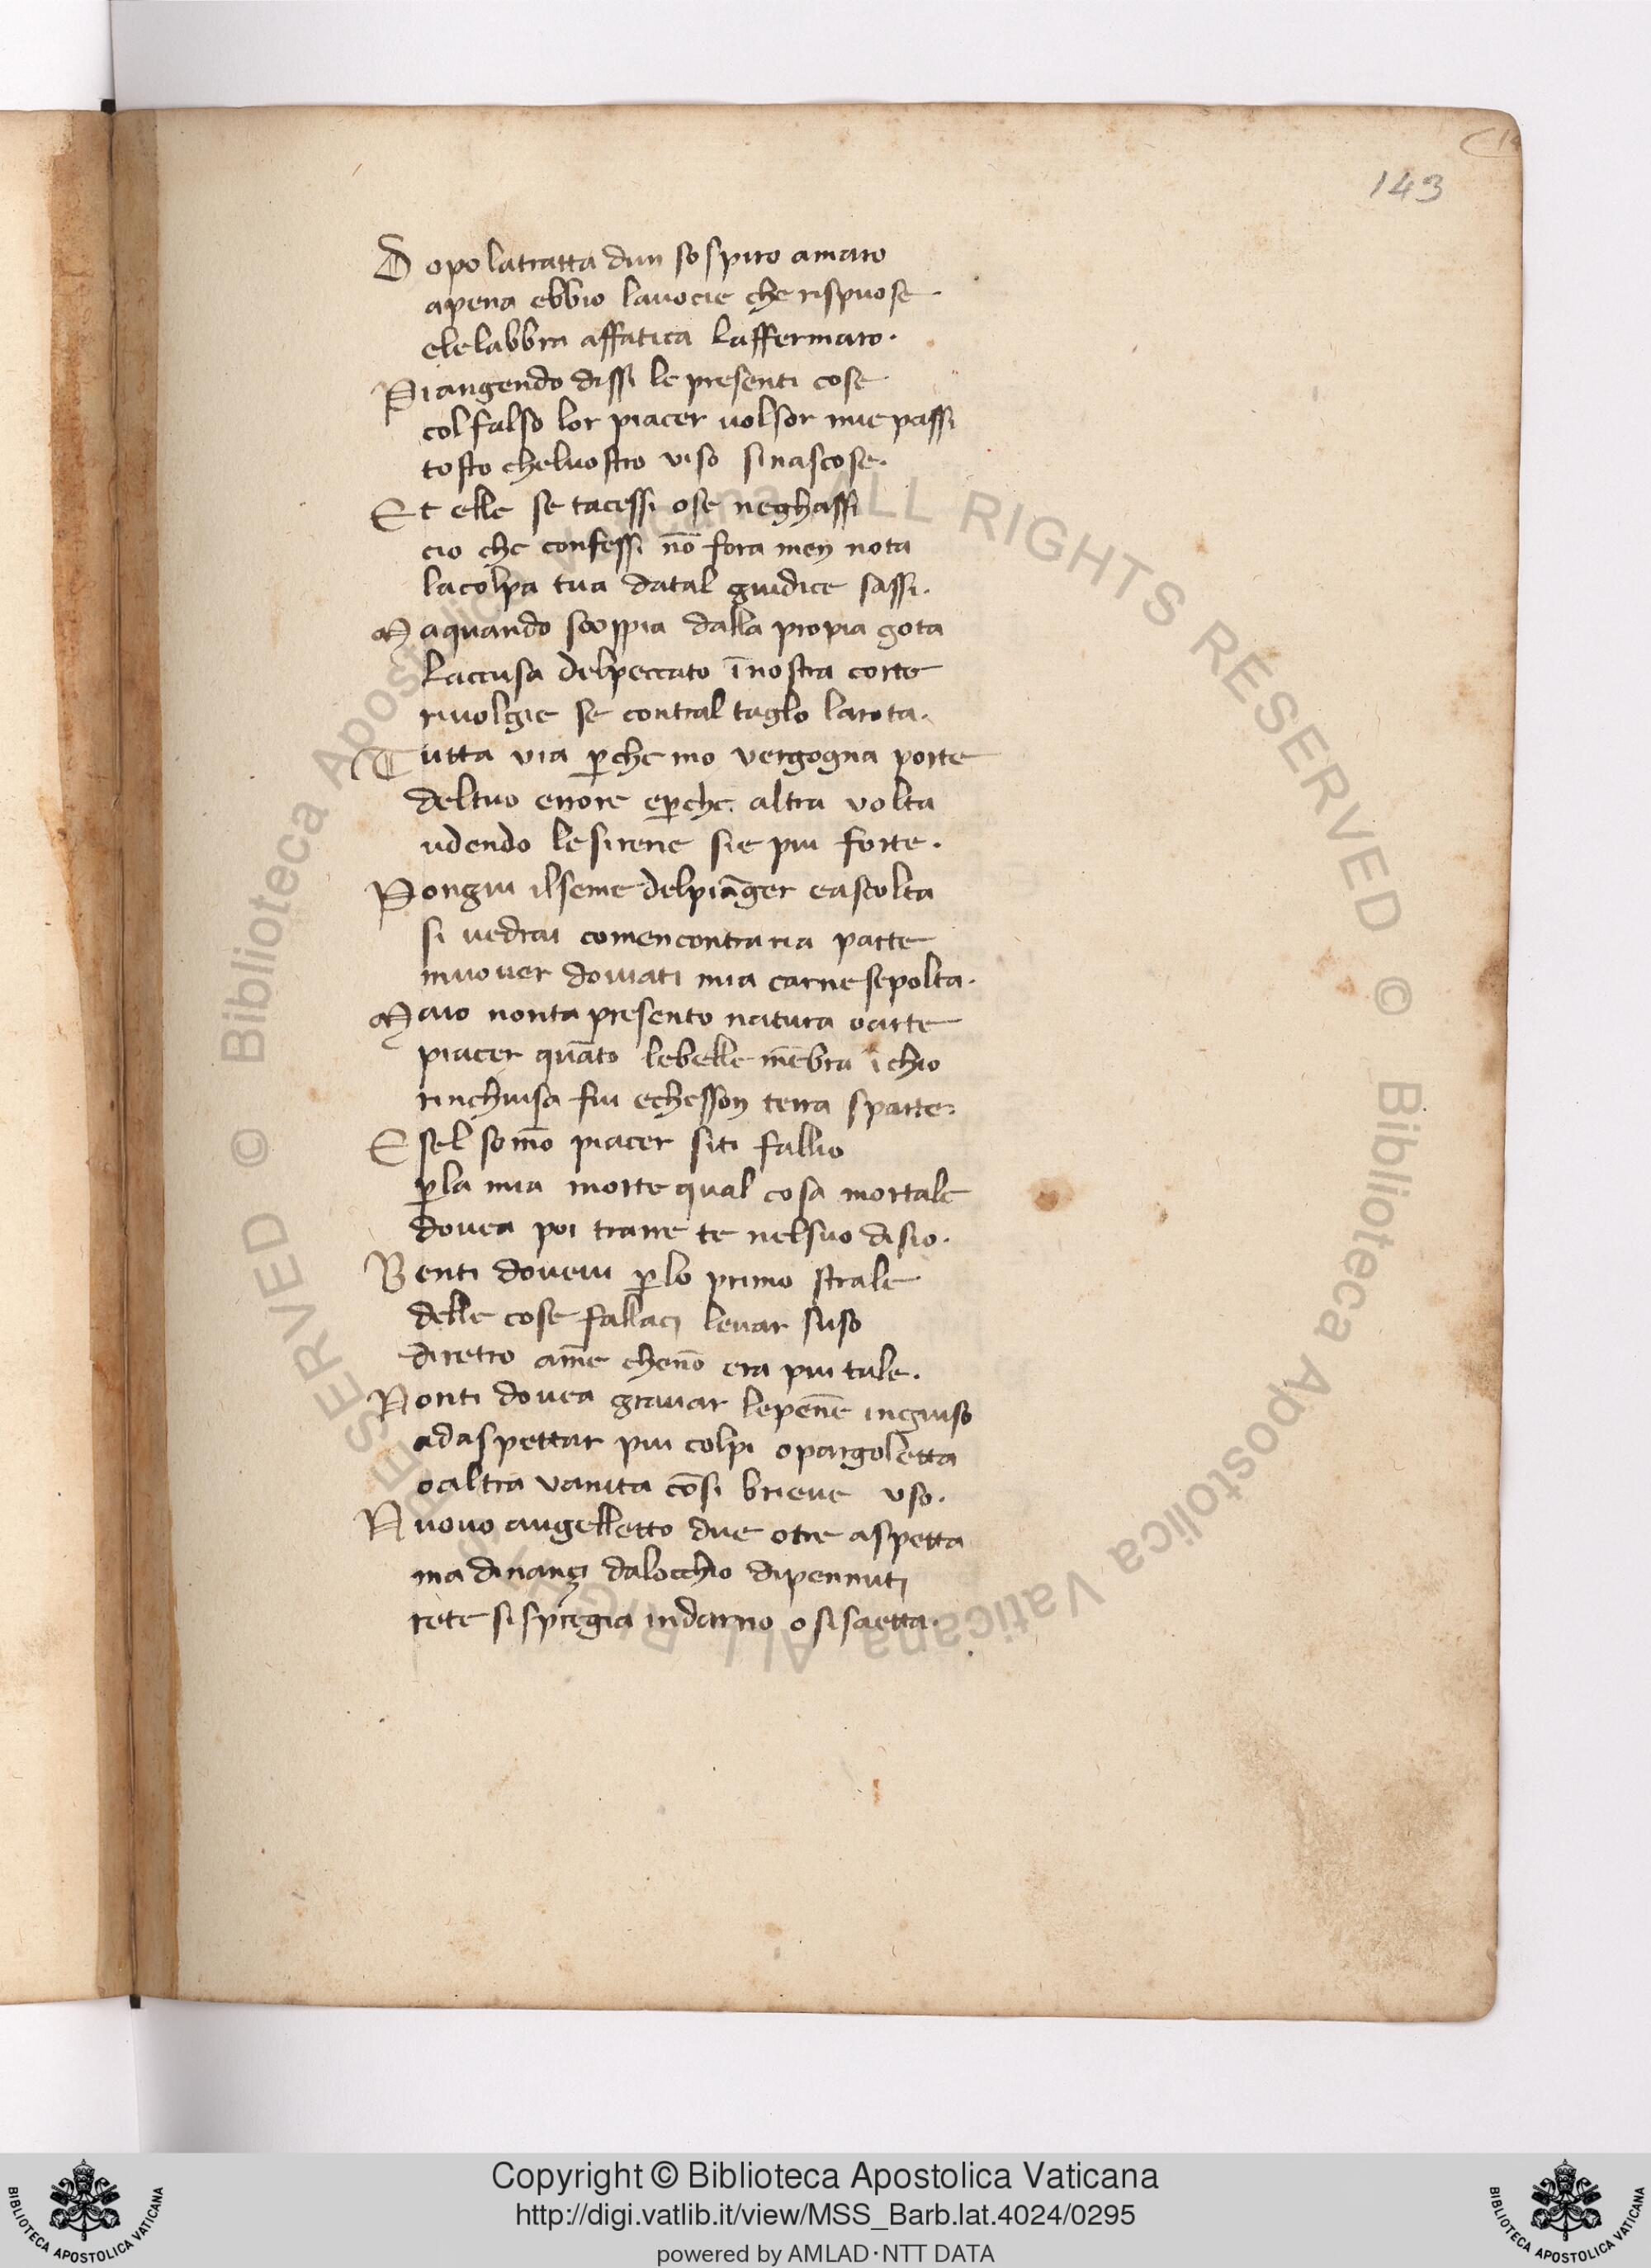 143
Dopo latratta dun sospiro amaro
apena ebbio lauocie che rispuose.
elelabbra affatica laffermaro.
Piangendo dissi le presenti cose
colfalso lor piacer uolsor mie passi
tosto cheluostro viso sinascose.
Et elle se tacessi ose neghassi
cio che confessi nō fora men nota
lacolpa tua datal giudice sassi.
Maquando scoppia dalla propia gota
laccusa delpeccato īnostra corte
riuolgie se contral taglo larota.
Tutta via ꝑche mo vergogna porte
deltuo errore eꝑche altra volta
udendo lesirene sie piu forte.
Pongiu ilseme delpiāger eascolta
si uedrai comencontraria parte
muouer douiati mia carne sepolta.
Maio nonta presento natura oarte
piacer quāto lebelle mēbra īchio
rinchiusa fui echesson terra sparte.
E sel somō piacer siti fallio
ꝑla mia morte qual cosa mortale
douea poi trarre te nelsuo disio.
Benti doueui ꝑlo primo strale
delle cose fallaci leuar suso
diretro amē chenō era piu tale.
Nonti douea grauar lepēne ingiuso
adaspettar piu colpi opargoletta
oaltra vanita cōsi brieue uso.
Nuouo augelletto due otre aspetta
ma dinançi dalocchio dipennuti
rete sispiegia indarno osisaetta.
© Biblioteca Apostolica Vaticana ALL RIGHTS RESERVED © Biblioteca Apostolica Vaticana ALL RIGHTS RESERVED
Copyright © Biblioteca Apostolica Vaticana
http://digi.vatlib.it/view/MSS_Barb.lat.4024/0295
powered by AMLAD·NTT DATA
BIBLIOTECA APOSTOLICA VATICANA
BIBLIOTECA APOSTOLICA VATICANA